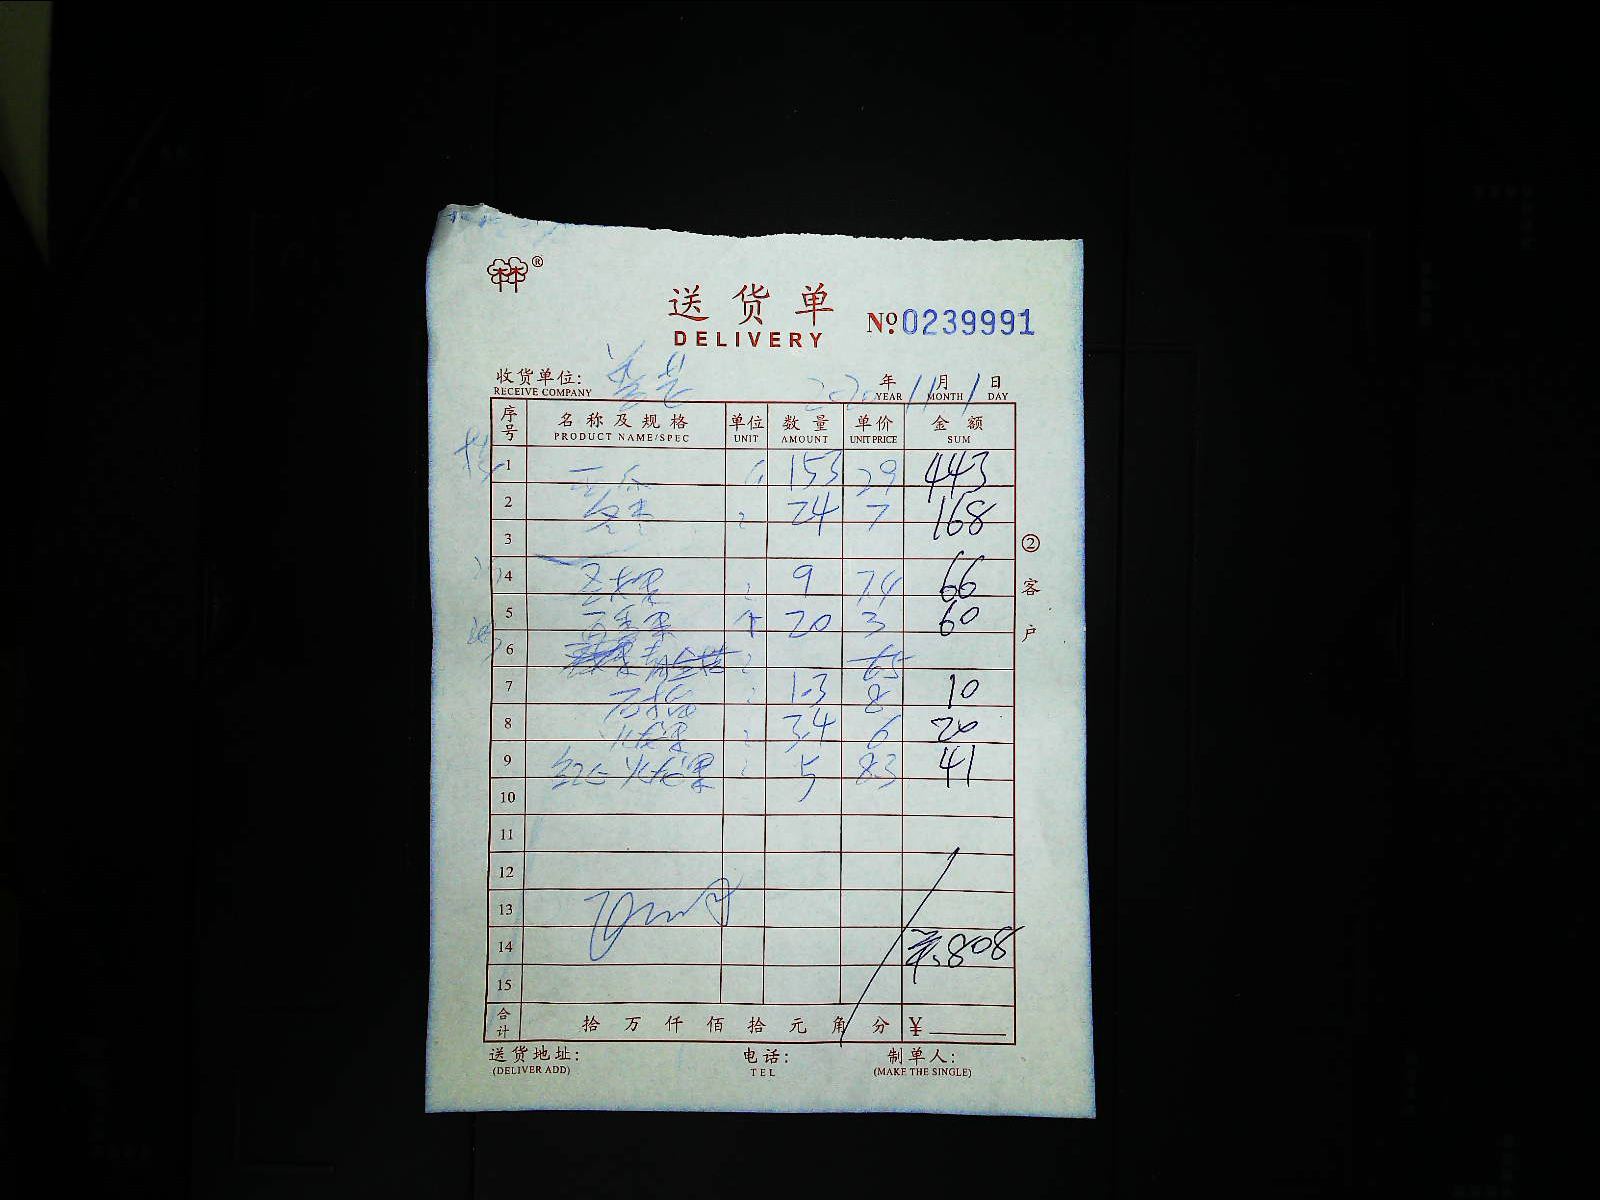 林®
送货单
DELIVERY
№ 0239991
收货单位:
RECEIVE COMPANY
2020年11月1日
YEAR MONTH DAY
序号 名称及规格 单位 数量 单价 金额
PRODUCT NAME/SPEC UNIT AMOUNT UNIT PRICE SUM
1 153 29 443
2 冬枣 24 7 168
3
4 9 7.4 66
5 百香果 个 20 3 60
6 65
7 石榴 1.3 8 10
8 火龙果 3.4 6 20
9 红心火龙果 5 8.3 41
10
11
12
13
14 808
15
合计 拾 万 仟 佰 拾 元 角 分 ¥
② 客户
送货地址: 电话: 制单人:
(DELIVER ADD) TEL (MAKE THE SINGLE)